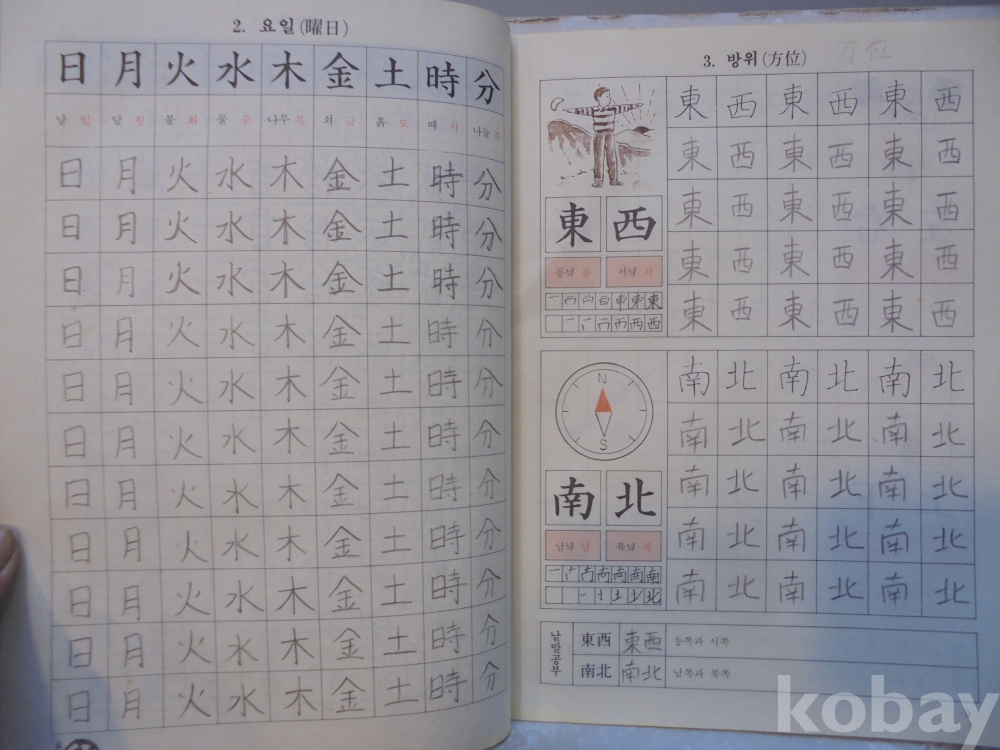 2. 요일(曜日)
日 月 火 水 木 金 土 時 分
날 일 달 월 불 화 물 수 나무 목 쇠 금 흙 토 때 시 나눌 분
日 月 火 水 木 金 土 時 分
日 月 火 水 木 金 土 時 分
日 月 火 水 木 金 土 時 分
日 月 火 水 木 金 土 時 分
日 月 火 水 木 金 土 時 分
日 月 火 水 木 金 土 時 分
日 月 火 水 木 金 土 時 分
日 月 火 水 木 金 土 時 分
日 月 火 水 木 金 土 時 分
日 月 火 水 木 金 土 時 分
日 月 火 水 木 金 土 時 分
3. 방위(方位) 方位
東 西 東 西 東 西
東 西 東 西 東 西
東 西 東 西 東 西
東 西 東 西 東 西
東 西 東 西 東 西
東 西
동녘 동 서녘 서
N
S
南 北 南 北 南 北
南 北 南 北 南 北
南 北 南 北 南 北
南 北 南 北 南 北
南 北 南 北 南 北
南 北
남녘 남 북녘 북
낱말공부
東西 東西 동쪽과 서쪽
南北 南北 남쪽과 북쪽
kobay